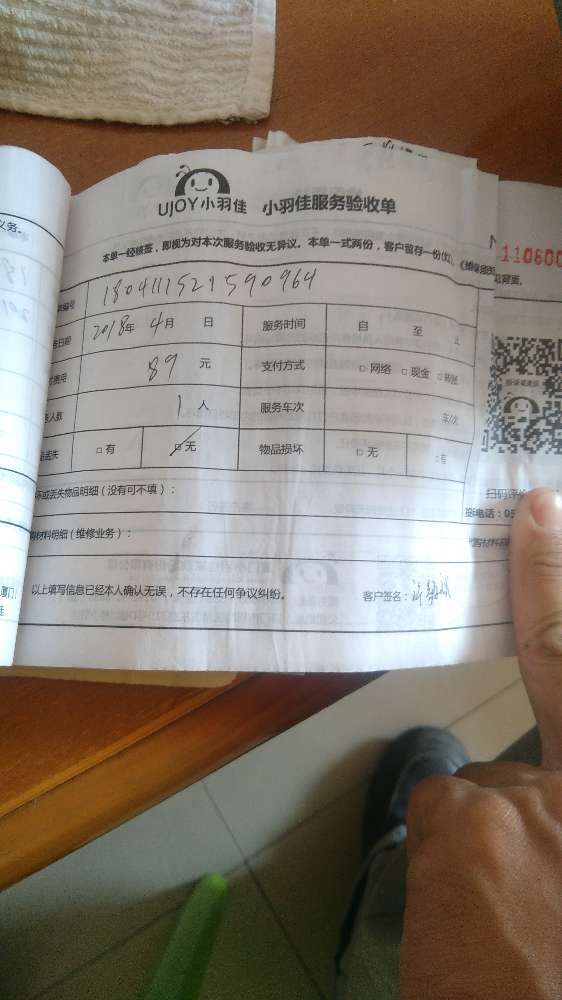 UJOY小羽佳 小羽佳服务验收单
本单一经核签，即视为对本次服务验收无异议。本单一式两份，客户留存一份
编号 180411152159 0964
日期 2018年 4月 日 服务时间 自 至 止
费用 89 元 支付方式 □ 网络 □ 现金 □ 转账
人数 1人 服务车次 车/次
丢失 □ 有 □ 无 物品损坏 □ 无 □ 有
坏或丢失物品明细（没有可不填）：
材料明细（维修业务）：
以上填写信息已经本人确认无误，不存在任何争议纠纷。 客户签名：
110600
扫码评价
电话：05
义务。